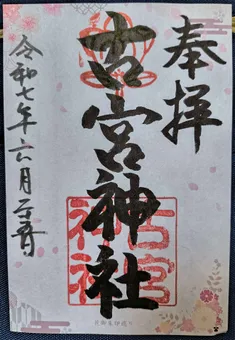 奉拝
古宮神社
令和七年六月
古宮
神社